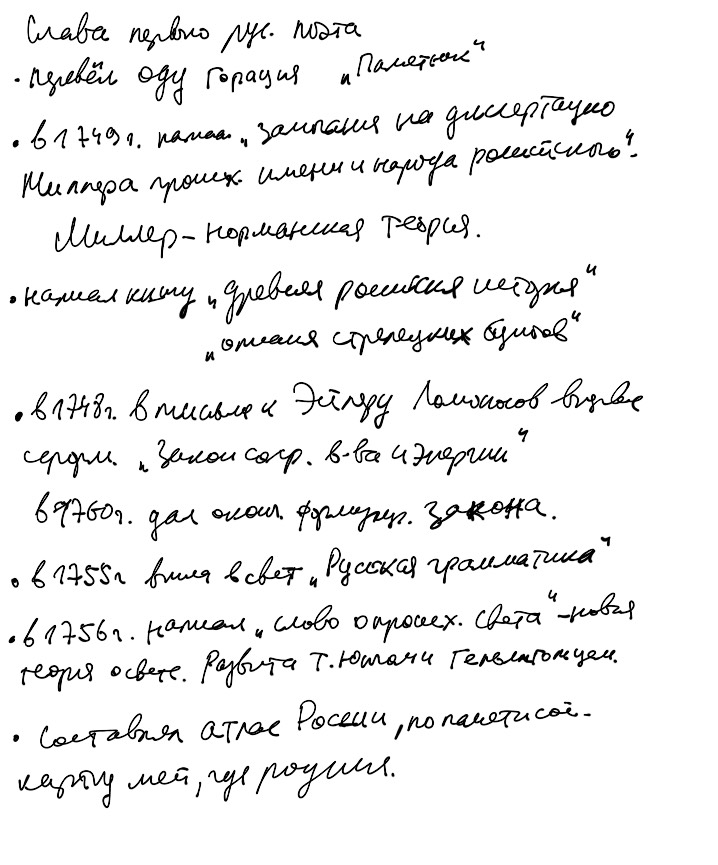 Слава первого рус. поэта
• перевёл оду Горация „Памятник"
• в 1749 г. написал „Замечания на диссертацию
Миллера происх. имени и народа российского".
Миллер – норманская теория.
• написал книгу „Древняя российская история"
„описания стрелецких бунтов"
• в 1748 г. в письме к Эйлеру Ломоносов впервые
сформ. „Закон сохр. в-ва и энергии"
в 1760 г. дал окон. формулир. закона.
• в 1755 г вышла в свет „Русская грамматика"
• в 1756 г. написал „слово о происх. света" – новая
теория о свете. Развита Т. Юнгом и Гельмгольцем.
• Составлял атлас России, по памяти сос-
карту мест, где родился.